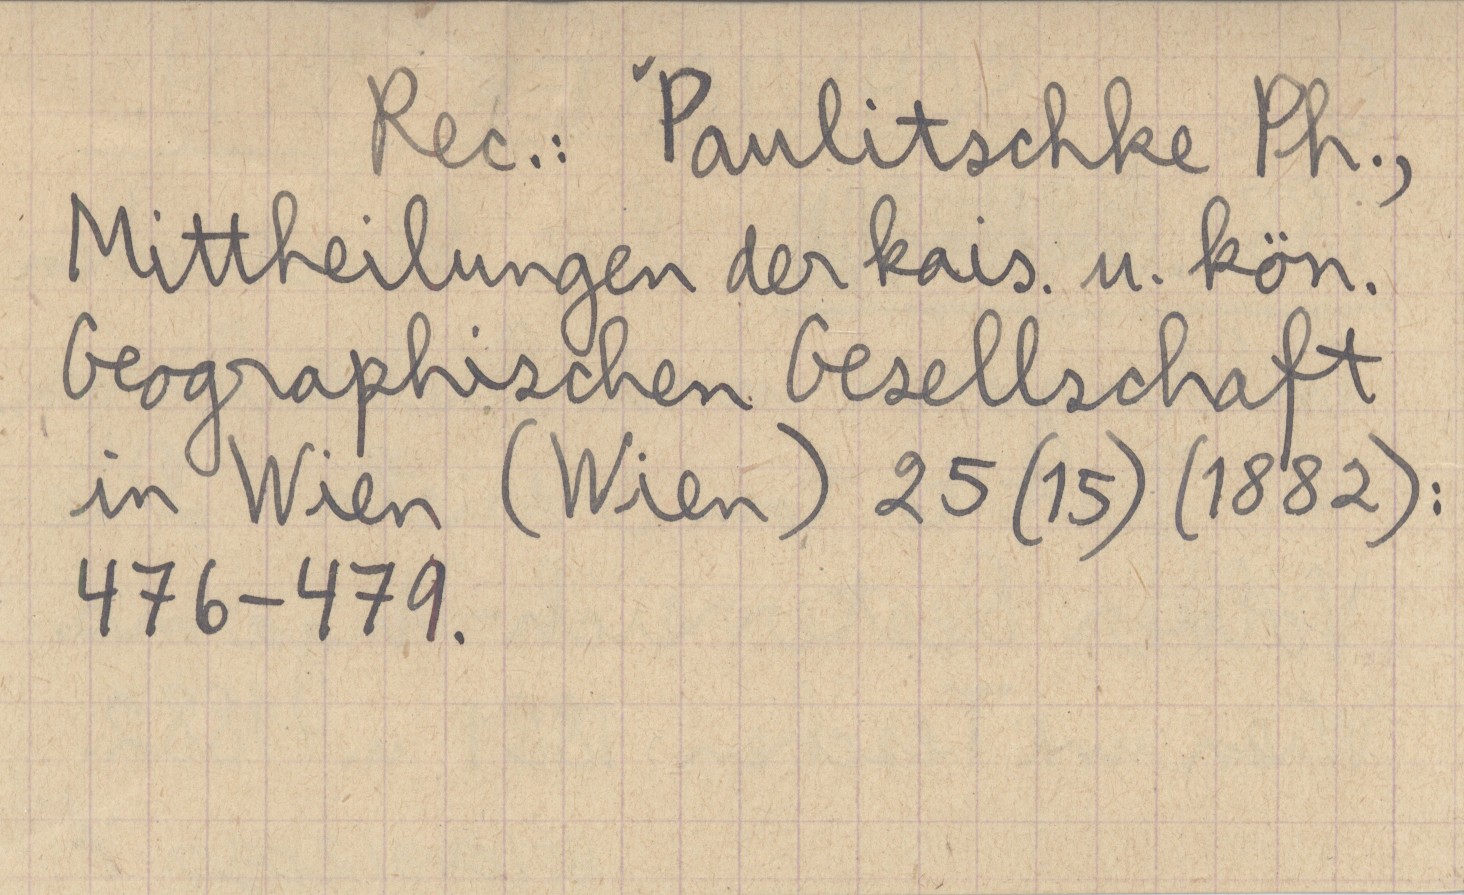 Rec.: Paulitschke Ph.,
Mittheilungen der kais. u. kön.
Geographischen Gesellschaft
in Wien (Wien) 25 (15) (1882):
476-479.